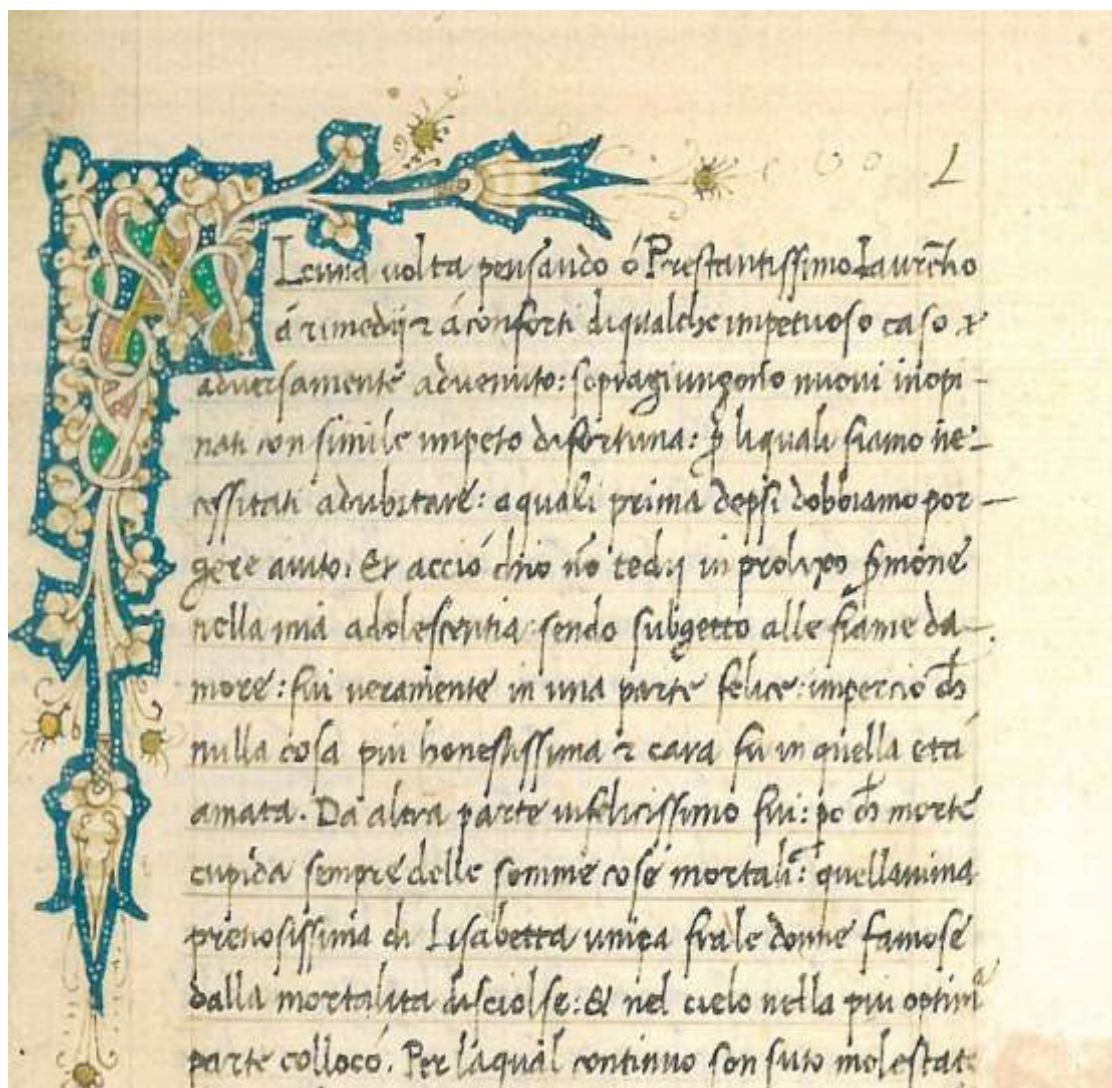 L
ALcuna uolta pensando ó Prestantissimo Laurētio
á rimedij ⁊ á conforti di qualche impetuoso caso
adversamente advenuto: sopragiungono nuoui inopi-
nati con simile impeto di fortuna: ꝑ liquali siamo ne-
cessitati adubitare: aquali prima depsi dobbiamo por-
gere aiuto. Et acció chio nō tedij in prolixo ꝑmone
nella mia adolescentia sendo subgetto alle fiāme da-
more: fui ueramente in una parte felice: imperció cħ
nulla cosa piu honestissima ⁊ cara fu in quella etá
amata. Da altra parte infelicissimo fui: po cħ morte
cupida sempre delle somme cose mortali: quellanima
pretiosissima di Lisabetta unica frale donne famose
dalla mortalita disciolse: Et nel cielo nella piu optima
parte collocó. Per laqual continuo son suto molestato